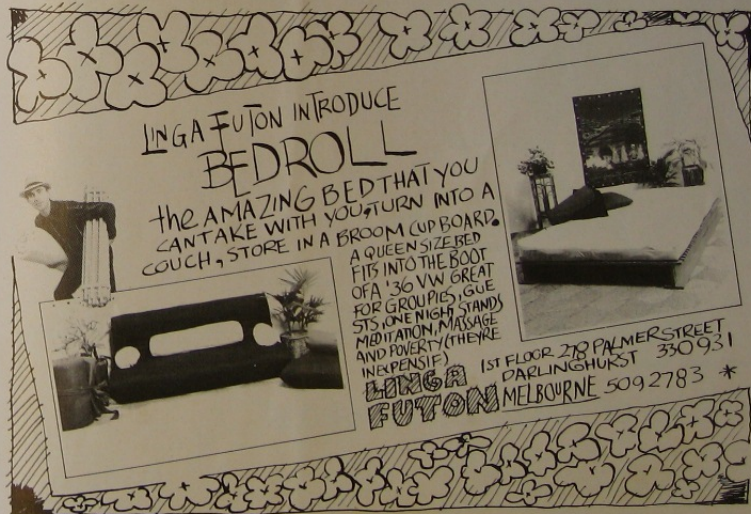 LINGA FUTON INTRODUCE
BEDROLL
the AMAZING BED THAT YOU
CAN TAKE WITH YOU, TURN INTO A
COUCH, STORE IN A BROOM CUPBOARD.
A QUEEN SIZE BED
FITS INTO THE BOOT
OF A '36 VW GREAT
FOR GROUPIES, GUE
STS, ONE NIGHT STANDS
MEDITATION, MASSAGE
AND POVERTY (THEYRE
INEXPENSIF)
LINGA
FUTON
1ST FLOOR 278 PALMER STREET
DARLINGHURST 330931
MELBOURNE 5092783 *